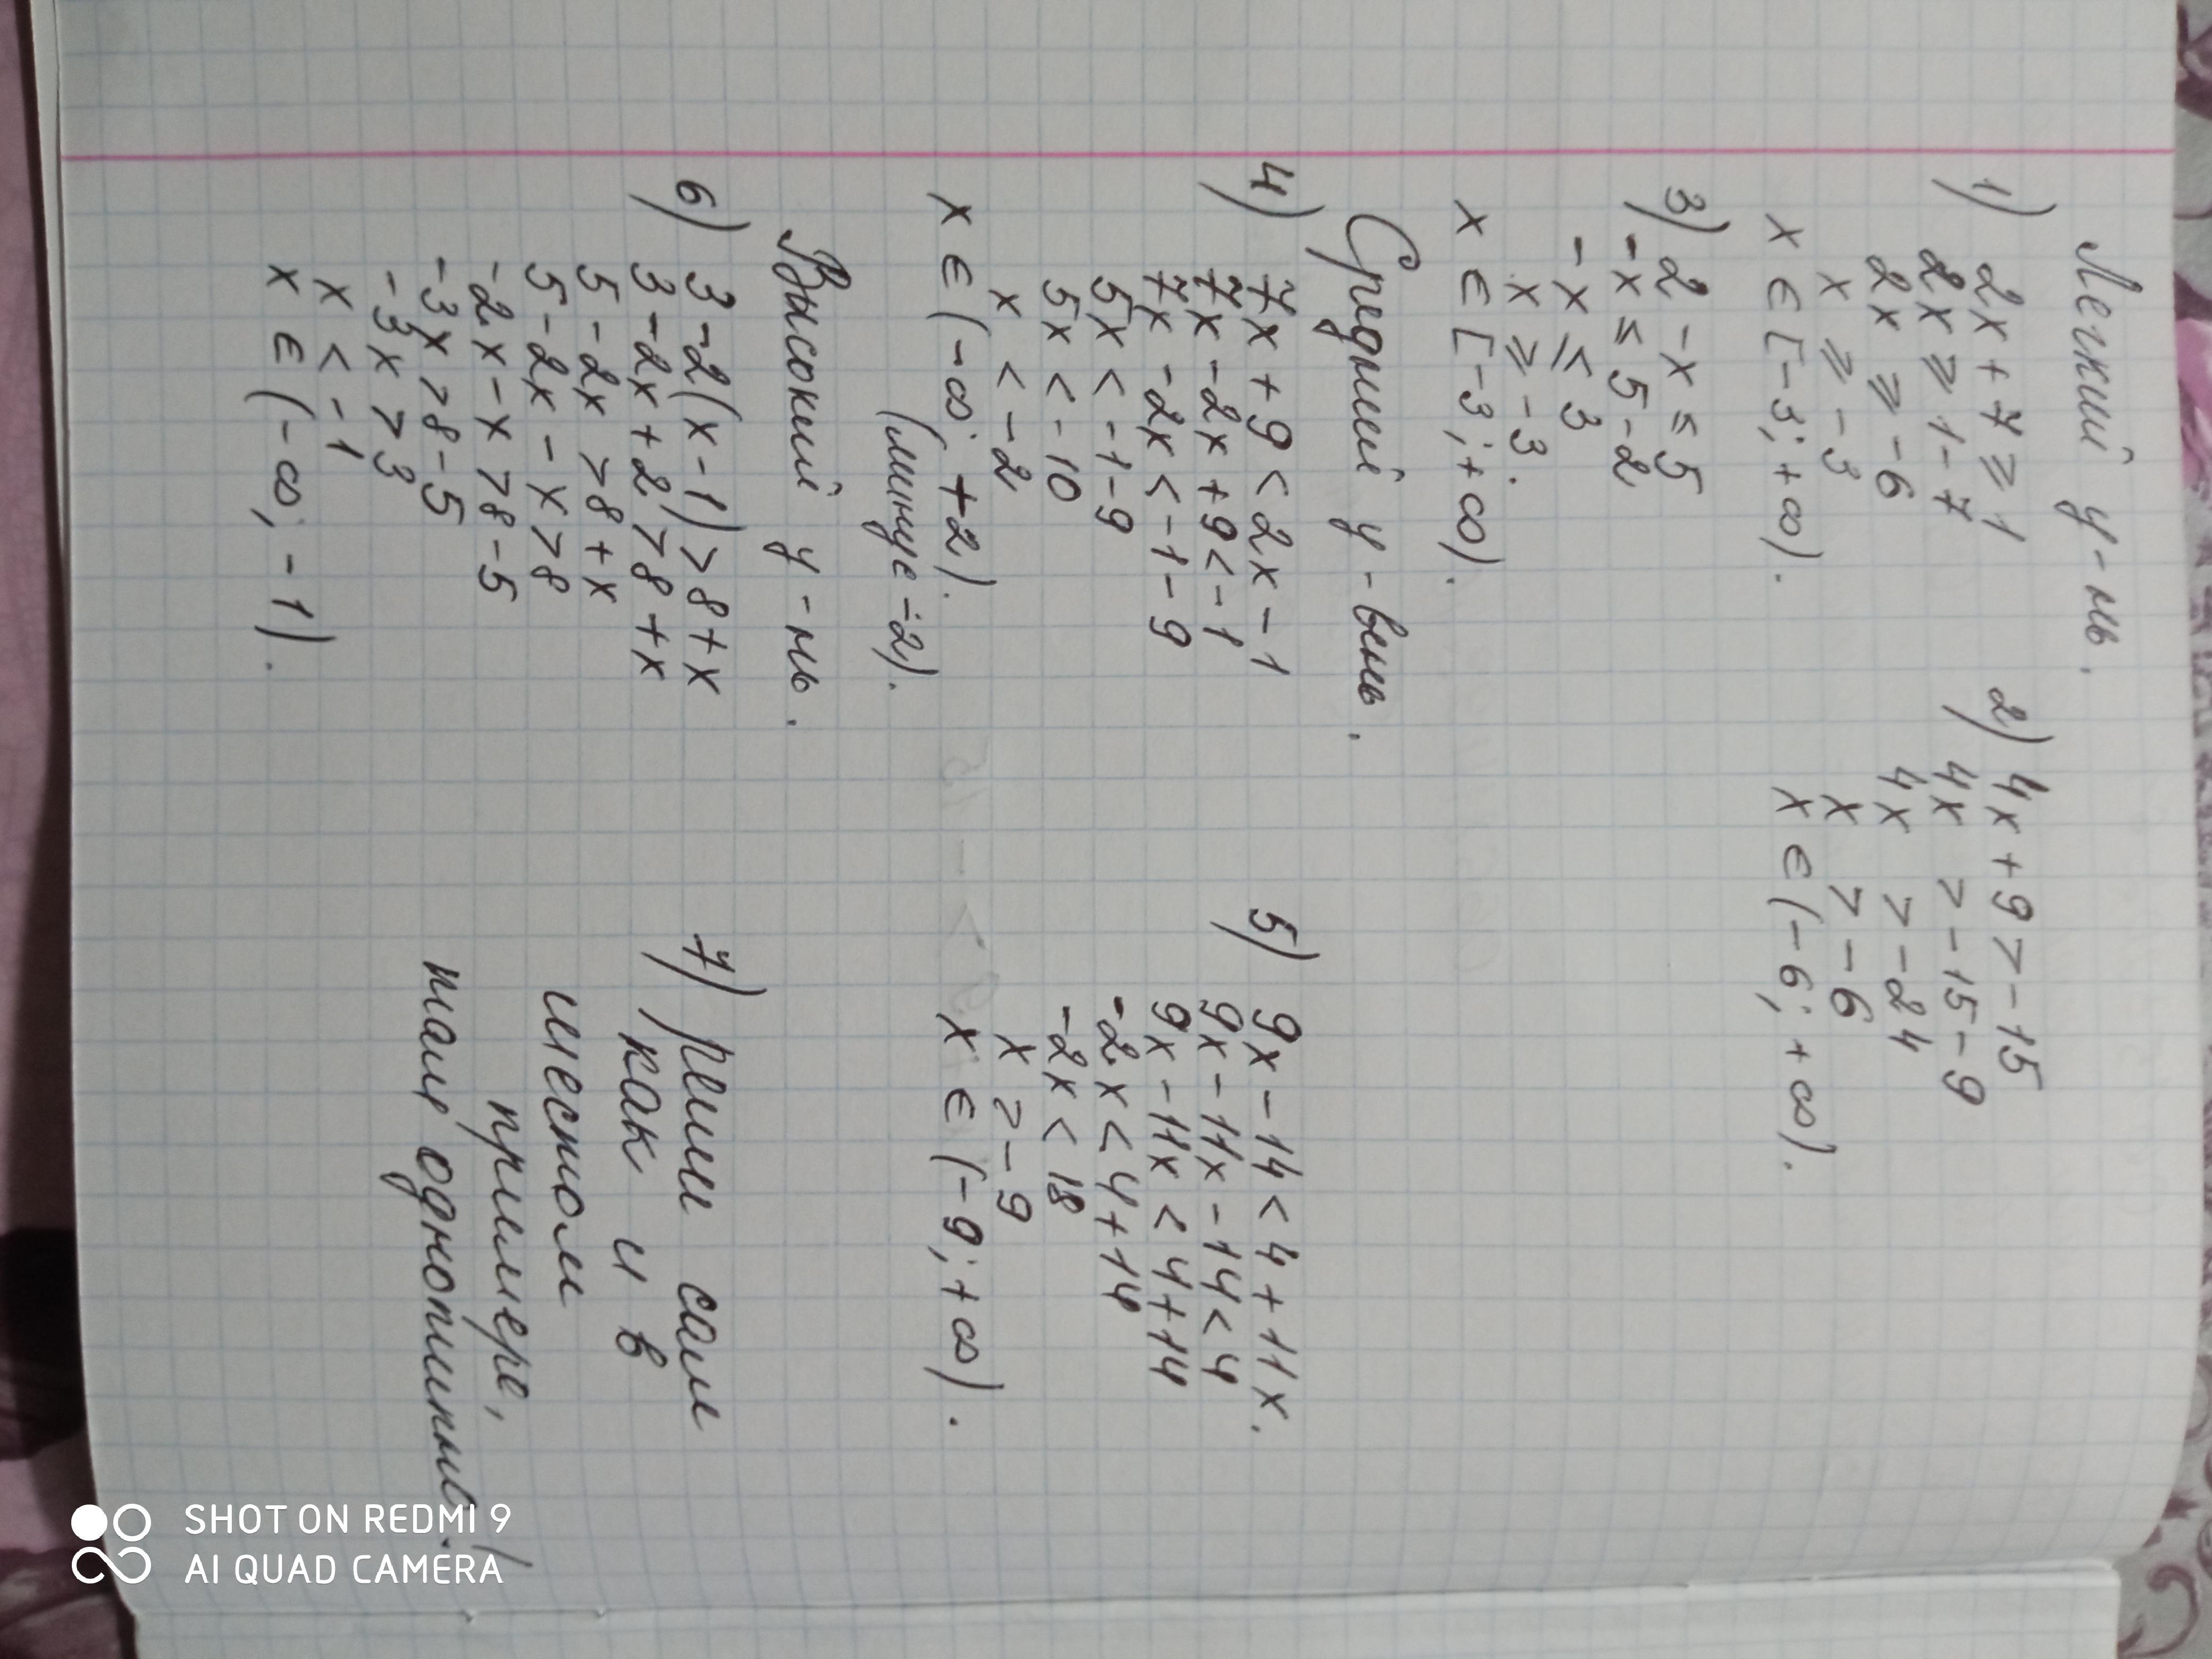 Легкий у-нь.
1) 2x + 7 ⩾ 1
2x ⩾ 1 - 7
2x ⩾ -6
x ⩾ -3
x ∈ [-3; +∞).
2) 4x + 9 > -15
4x > -15 - 9
4x > -24
x > -6
x ∈ (-6; +∞).
3) 2 - x ≤ 5
-x ≤ 5 - 2
-x ≤ 3
x ⩾ -3.
x ∈ [-3; +∞).
Средний у-вень.
4) 7x + 9 < 2x - 1
7x - 2x + 9 < -1
7x - 2x < -1 - 9
5x < -1 - 9
5x < -10
x < -2
x ∈ (-∞; +2).
(минус -2).
5) 9x - 14 < 4 + 11x.
9x - 11x - 14 < 4
9x - 11x < 4 + 14
-2x < 4 + 14
-2x < 18
x > -9
x ∈ (-9; +∞).
Высокий у-нь.
6) 3 - 2(x - 1) > 8 + x
3 - 2x + 2 > 8 + x
5 - 2x > 8 + x
5 - 2x - x > 8
-2x - x > 8 - 5
-3x > 8 - 5
-3x > 3
x < -1
x ∈ (-∞; -1).
7) реши сам
как и в
шестом
примере,
там однотипно!
SHOT ON REDMI 9
AI QUAD CAMERA